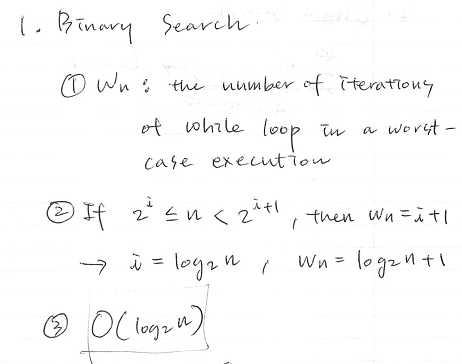 1. Binary Search.
① Wn : the number of iterations
of while loop in a worst-
case execution
② If 2^i ≤ n < 2^{i+1}, then Wn = i+1
→ i = log₂n, Wn = log₂n+1
③ O(log₂n)